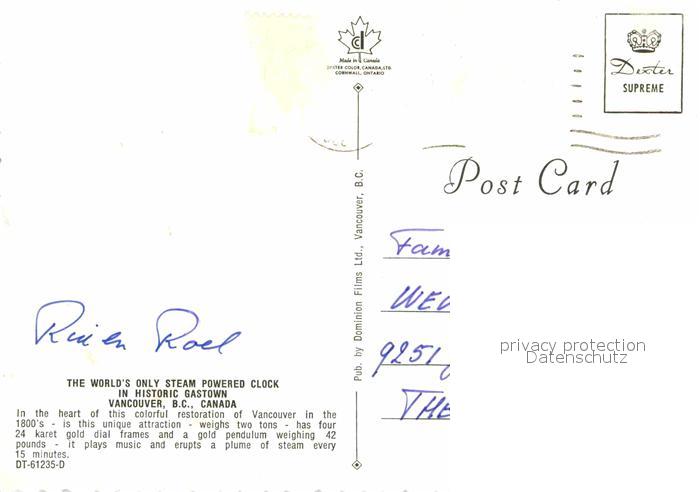 Made in Canada
DEXTER COLOR, CANADA, LTD.
CORNWALL, ONTARIO
Dexter
SUPREME
Post Card
Pub. by Dominion Films Ltd., Vancouver, B.C.
Fam
9251
THE
privacy protection
Datenschutz
en Roel
THE WORLD'S ONLY STEAM POWERED CLOCK
IN HISTORIC GASTOWN
VANCOUVER, B.C., CANADA
In the heart of this colorful restoration of Vancouver in the
1800's - is this unique attraction - weighs two tons - has four
24 karet gold dial frames and a gold pendulum weighing 42
pounds - it plays music and erupts a plume of steam every
15 minutes.
DT-61235-D